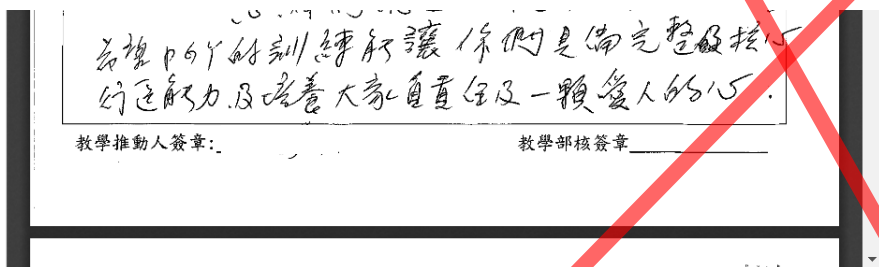 希望PGY的訓練能讓你們具備完整的核心
行醫能力及培養大家負責任及一顆愛人的心.
教學推動人簽章:
教學部核簽章